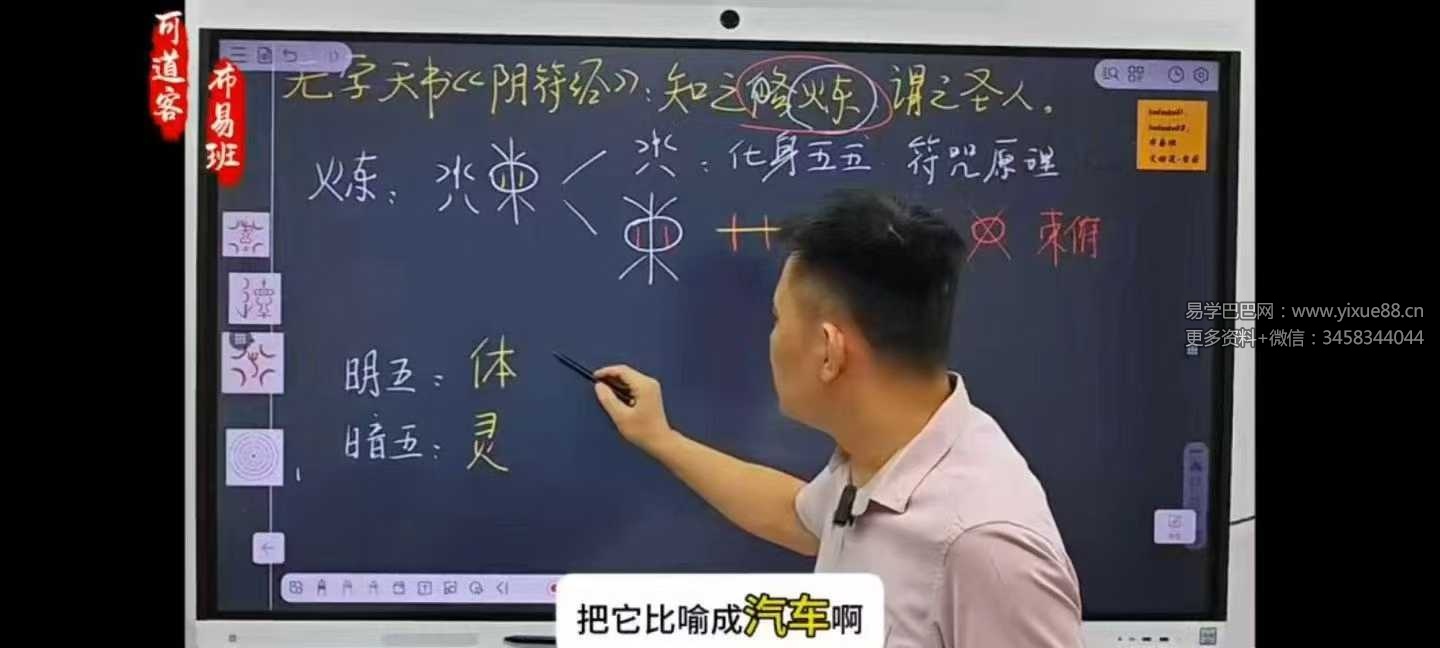 可道客
布易班
无字天书《阴符经》：知之修炼 谓之圣人。
火炼：
：化身五五 符咒原理
束俯
明五：体
暗五：灵
易学巴巴网：www.yixue88.cn
更多资料+微信：3458344044
把它比喻成汽车啊